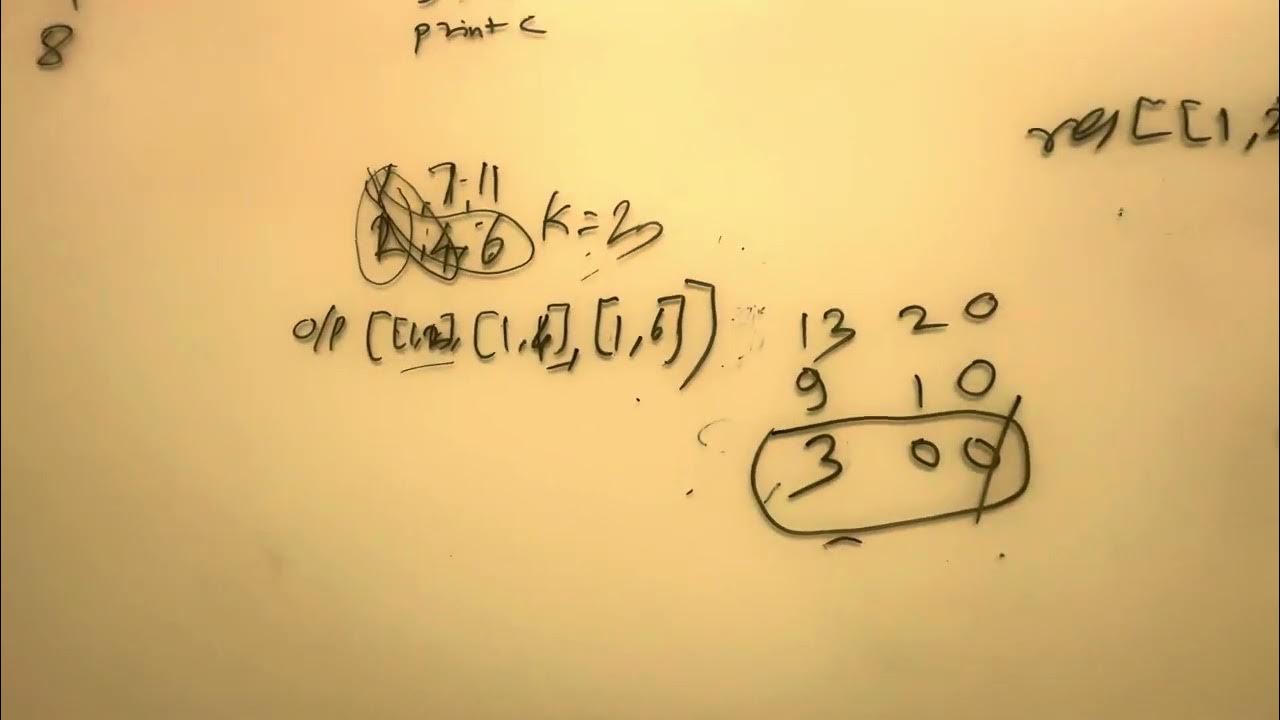 8
print c
res[[1,2
1,7,11
2,4,6 K=3
o/p [[1,2],[1,4],[1,6]]
13 2 0
9 1 0
3 0 0